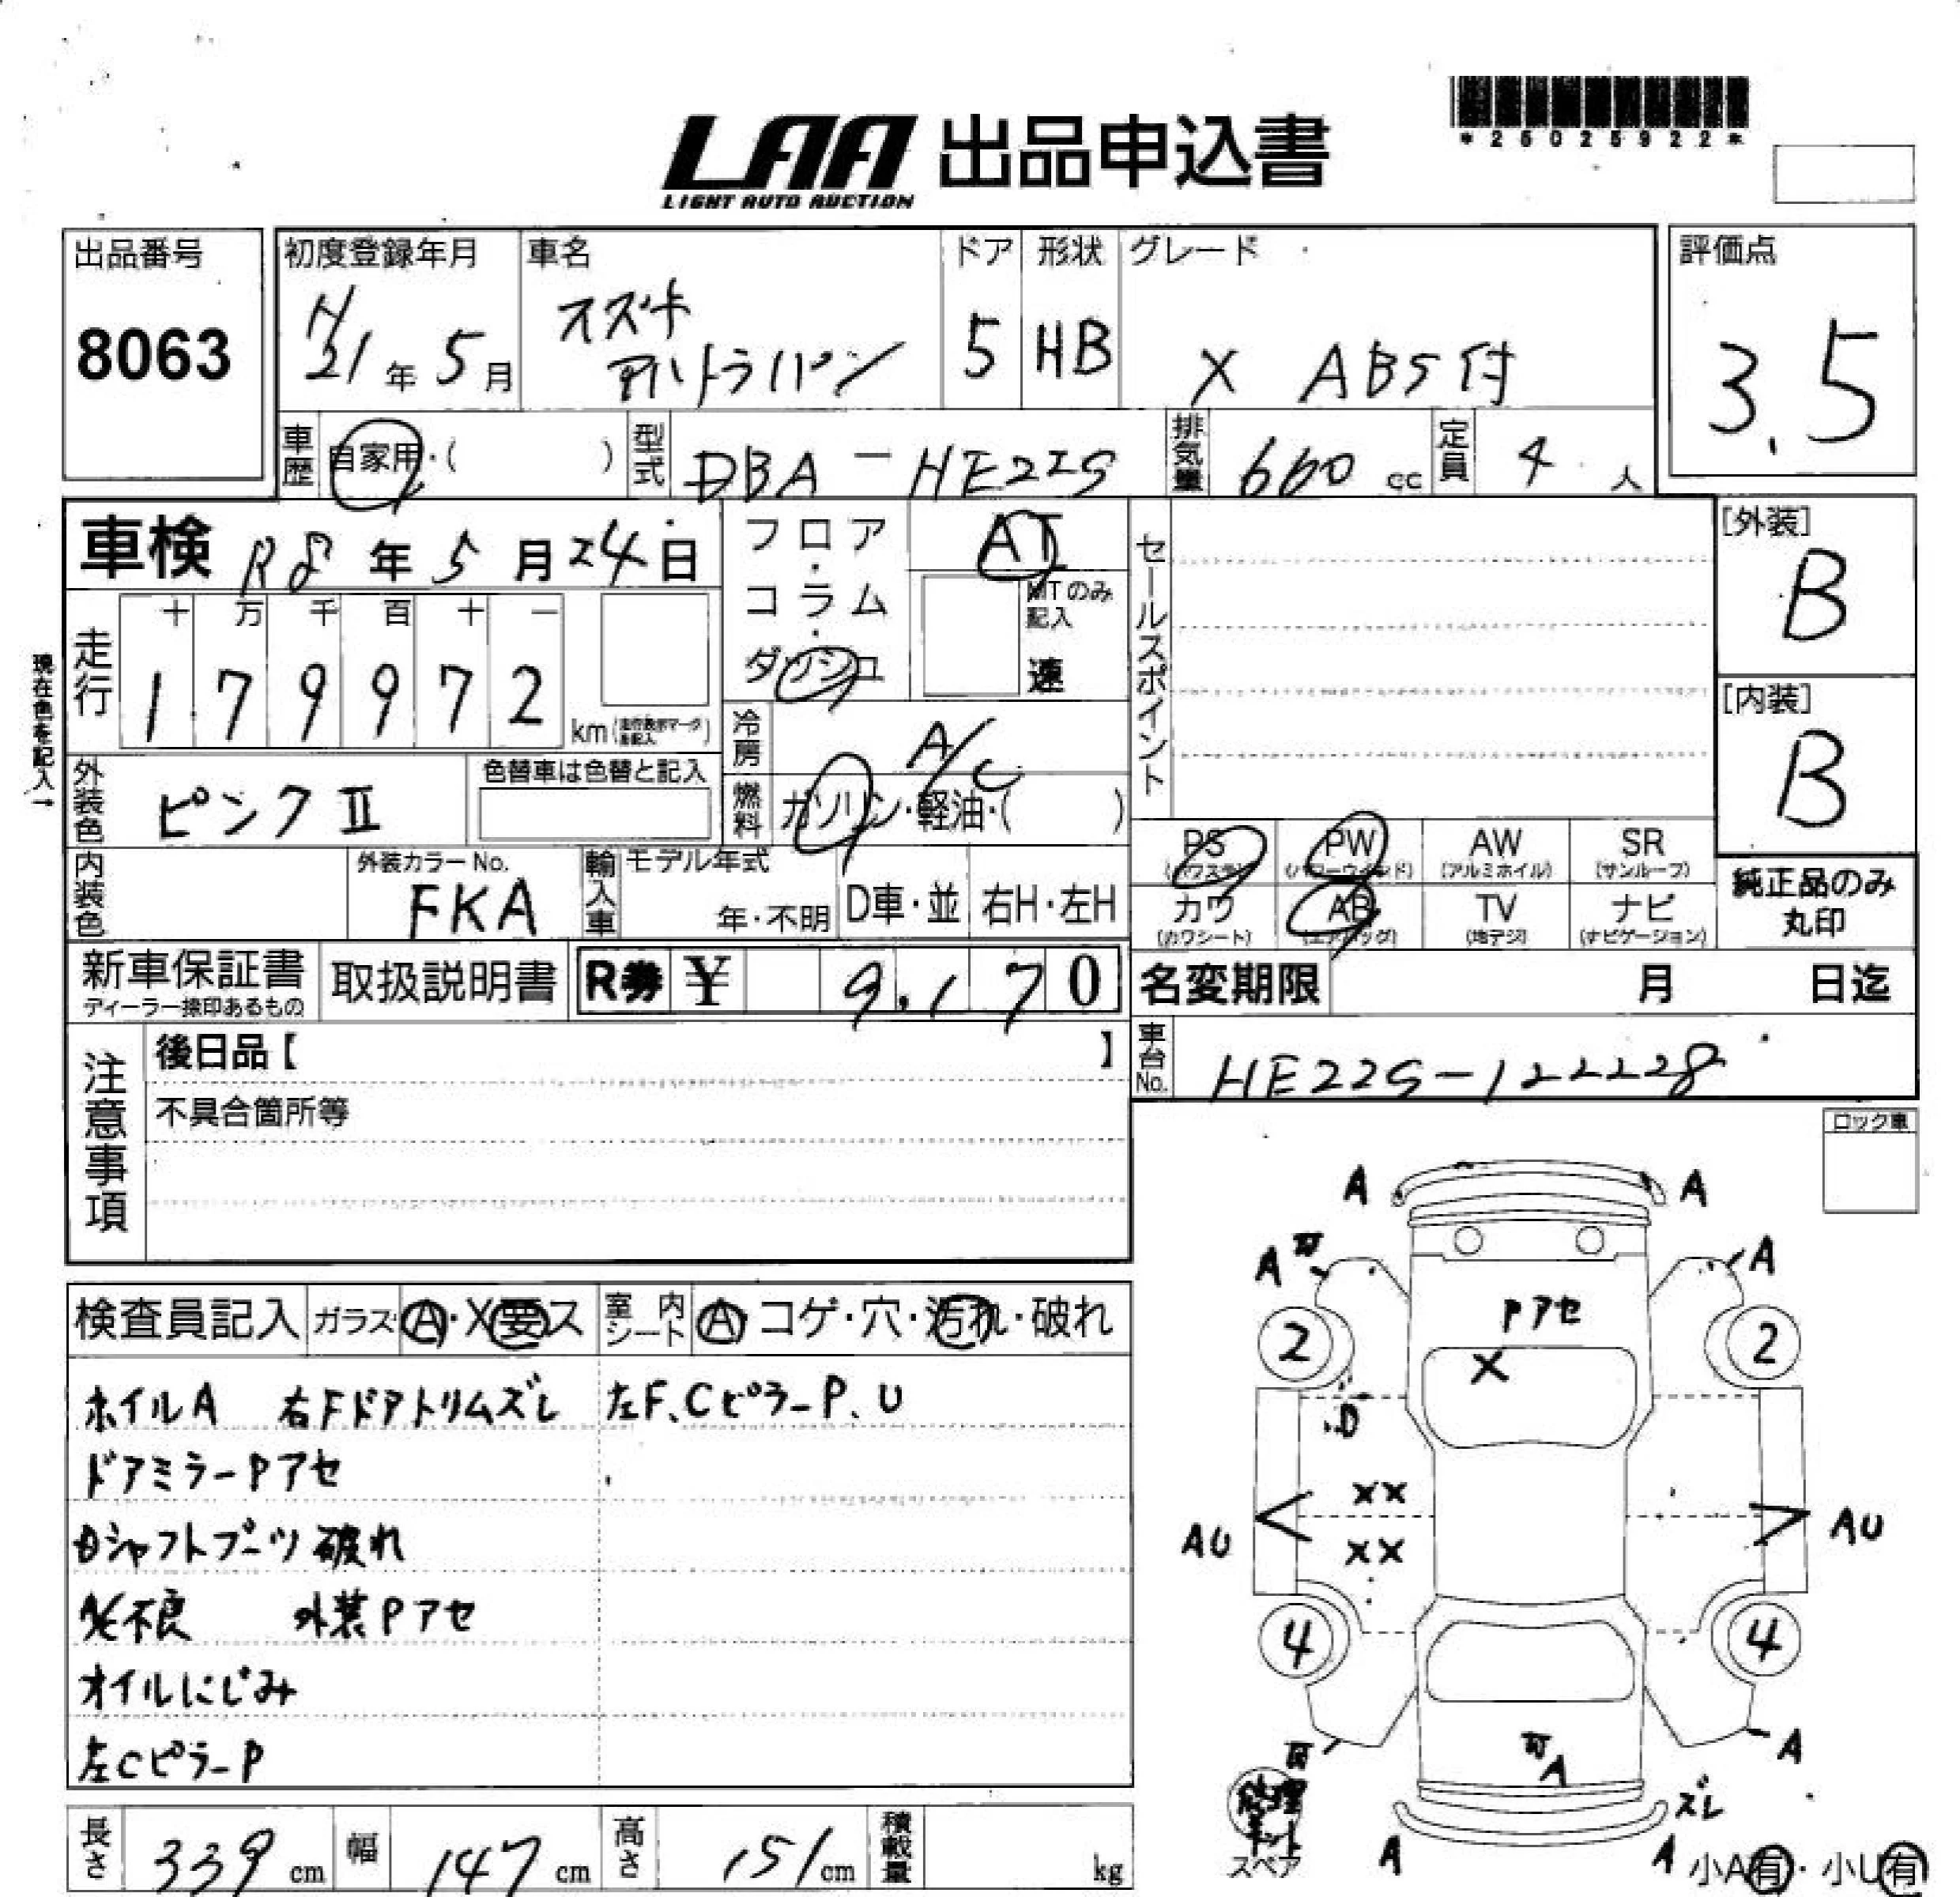 LAA 出品申込書
LIGHT AUTO AUCTION
*26025922*
出品番号
8063
初度登録年月
H21年5月
車名
スズキ
アルトラパン
ドア
5
形状
HB
グレード
X ABS付
評価点
3.5
車歴 自家用・( )
型式 DBA-HE22S
排気量 660 cc
定員 4 人
車検 R8年5月24日
フロア・コラム・ダッシュ
AT
MTのみ記入
速
セールスポイント
[外装]
B
[内装]
B
現在色を記入→
走行
十 万 千 百 十 一
1 7 9 9 7 2
km
冷房 A/C
燃料 ガソリン・軽油・( )
外装色 ピンクII
色替車は色替と記入
内装色
外装カラーNo.
FKA
輸入車
モデル年式
年・不明
D車・並
右H・左H
PS
(パワステ)
PW
(パワーウインド)
AW
(アルミホイル)
SR
(サンルーフ)
カワ
(カワシート)
AB
(エアバッグ)
TV
(地デジ)
ナビ
(ナビゲーション)
純正品のみ
丸印
新車保証書
ディーラー捺印あるもの
取扱説明書
R券 ¥ 9,170
名変期限 月 日迄
車台No. HE22S-122228
注意事項
後日品【 】
不具合箇所等
ロック車
検査員記入
ガラス A・X要ス
室内シート A・コゲ・穴・汚れ・破れ
ホイルA 右Fドアトリムズレ 左F、CピラーP、U
ドアミラーPアセ
Dシャフトブーツ破れ
A/C不良 外装Pアセ
オイルにじみ
左CピラーP
A A
A A
Pアセ
2 X 2
D
XX
AU AU
XX
4 4
A A
ズレ
修理キット
スペア
A A
小A有・小U有
長さ 339 cm
幅 147 cm
高さ 151 cm
積載量 kg